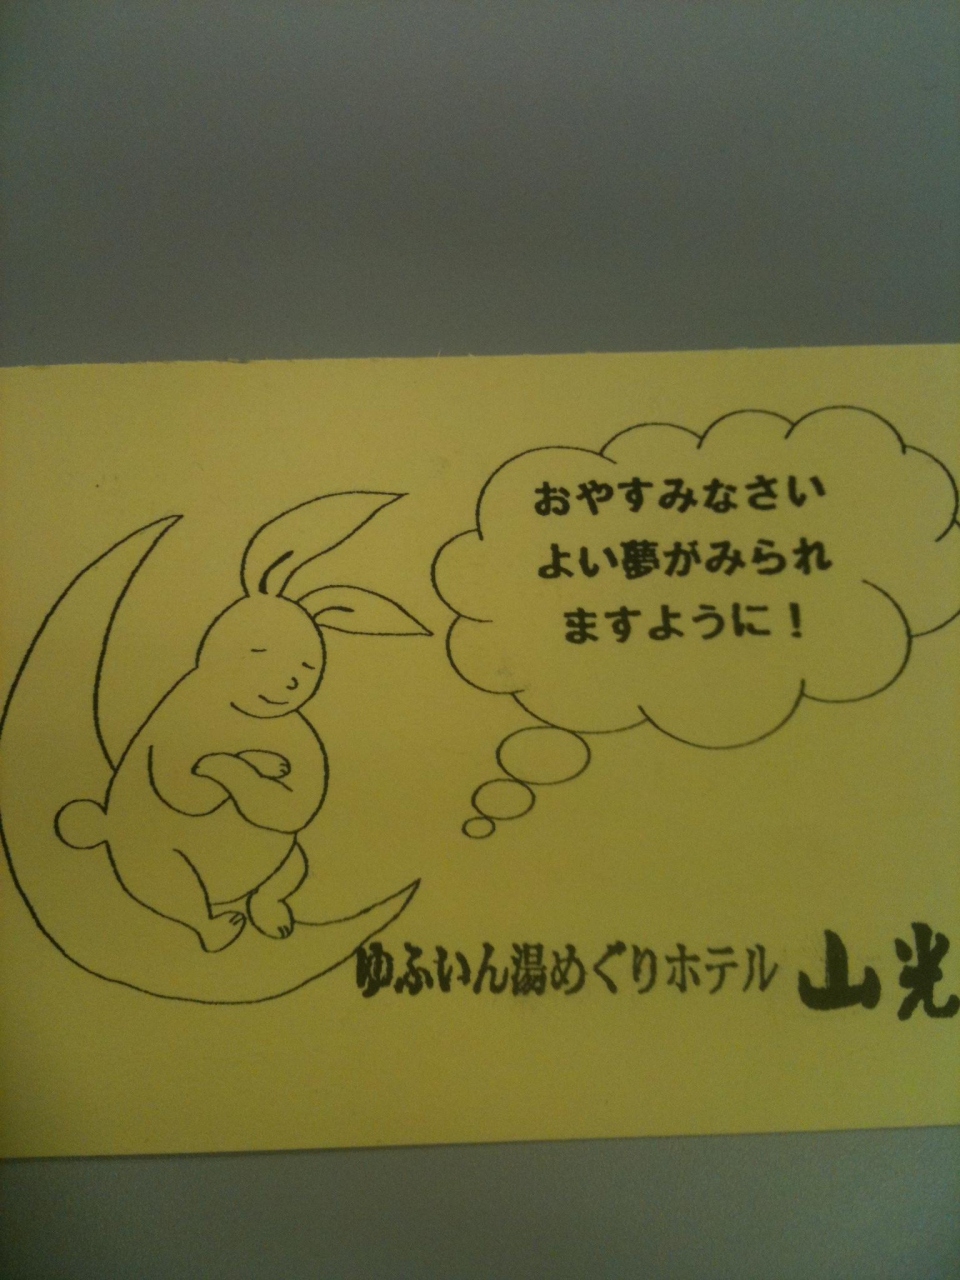 おやすみなさい
よい夢がみられ
ますように!
ゆふいん湯めぐりホテル 山光